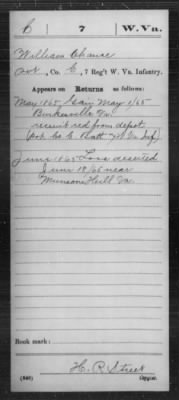 C | 7 | W. Va.
William Chance
Pvt., Co. C, 7 Reg't W. Va. Infantry.
Appears on Returns as follows:
May 1865, Gain May 1/65
Burkesville Va.
recruit red from depot
(Pvt. Co C Batt 7 W Va Inf.)
June 1865 Loss deserted
June 18/65 near
Munsons Hill Va.
Book mark:
H. R. Street
(546)
Copyist.